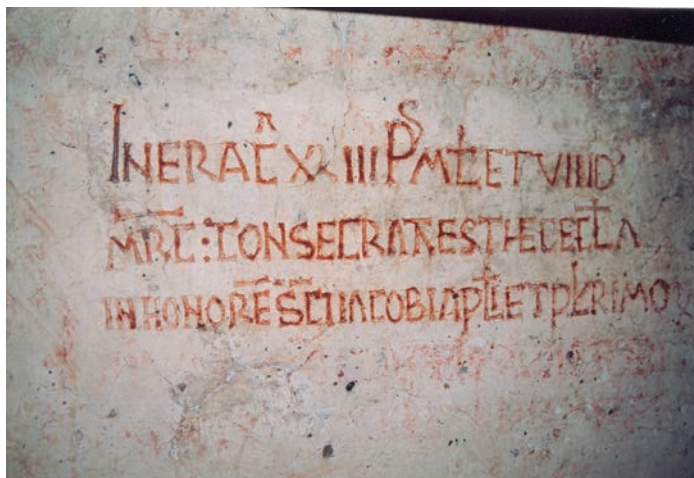 IN ERA C XXIII PS ML ET VIIII D
MRC : CONSECRATA EST HEC ECCLA
IN HONORE SCI IACOBI APLI ET PLRIMOR